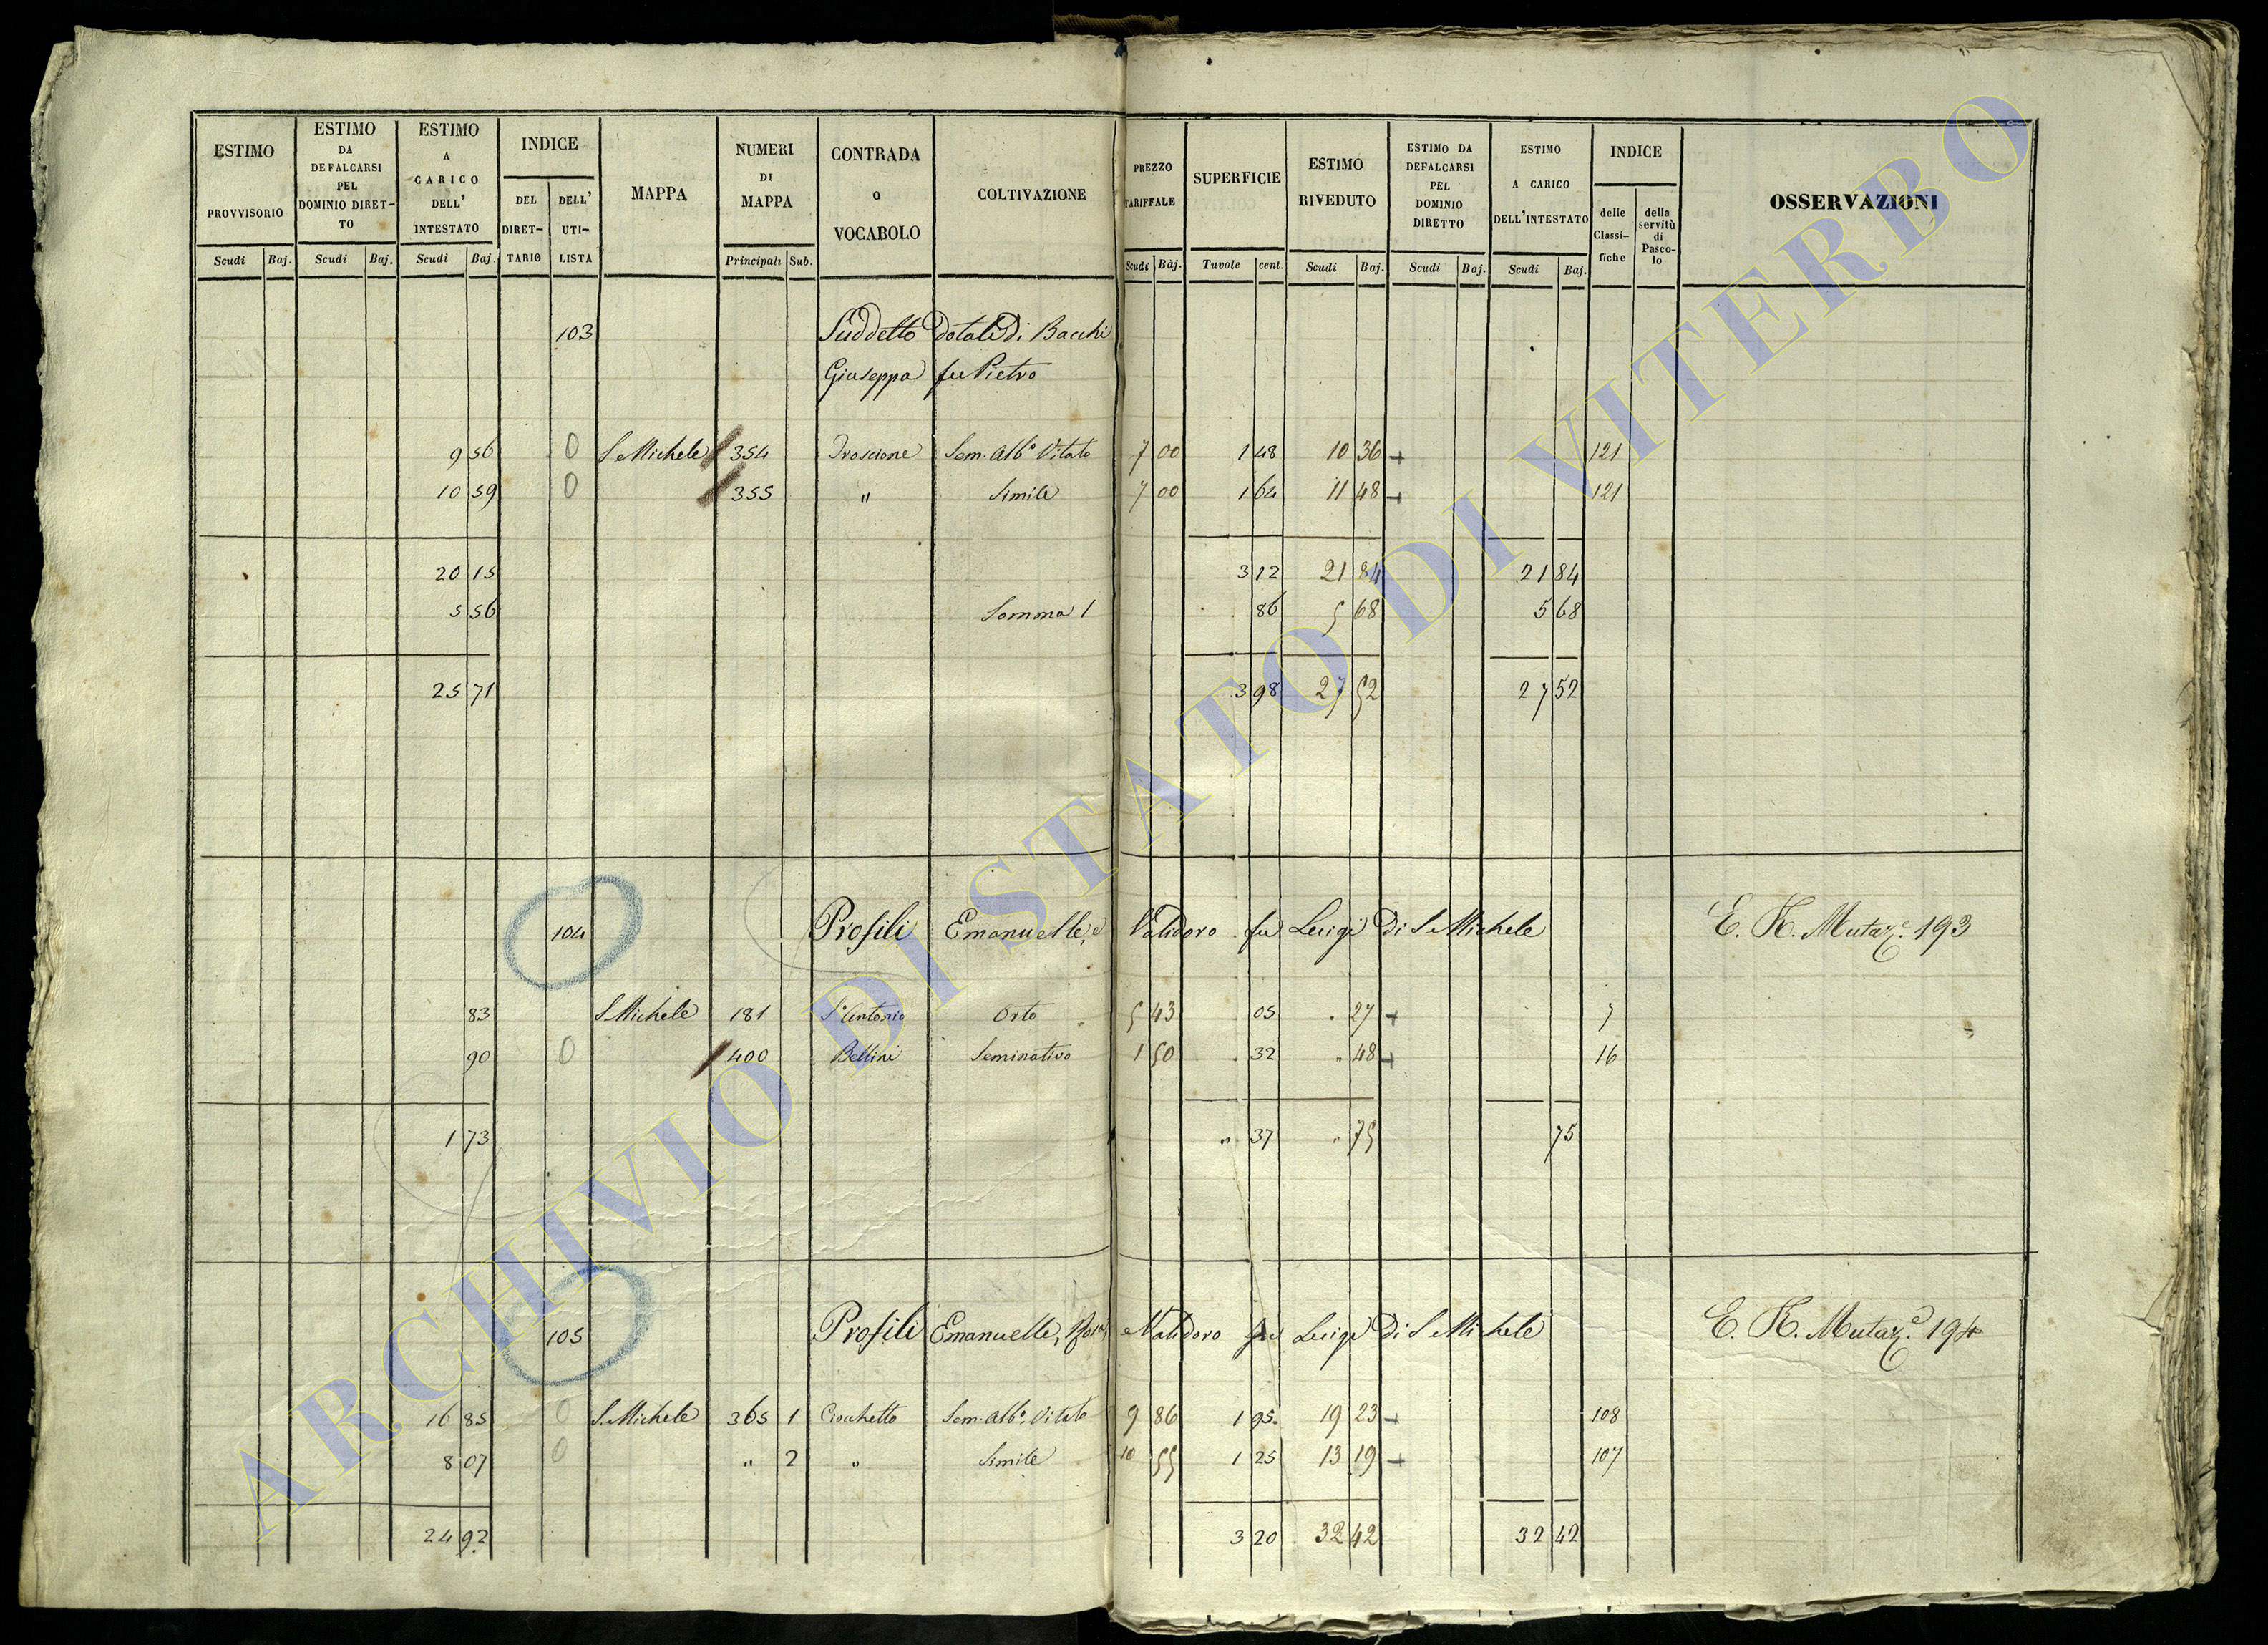 ESTIMO PROVVISORIO | ESTIMO DA DEFALCARSI PEL DOMINIO DIRETTO | ESTIMO A CARICO DELL' INTESTATO | INDICE | MAPPA | NUMERI DI MAPPA | CONTRADA o VOCABOLO | COLTIVAZIONE | PREZZO TARIFFALE | SUPERFICIE | ESTIMO RIVEDUTO | ESTIMO DA DEFALCARSI PEL DOMINIO DIRETTO | ESTIMO A CARICO DELL'INTESTATO | INDICE | OSSERVAZIONI
DEL DIRETTARIO | DELL' UTILISTA | delle Classifiche | della servitù di Pascolo
Scudi | Baj. | Scudi | Baj. | Scudi | Baj. | Principali | Sub. | Scudi | Baj. | Tavole | cent. | Scudi | Baj. | Scudi | Baj. | Scudi | Baj.
103 Suddetto dotale di Bacchi
Giuseppa fu Pietro
9 56 0 S. Michele 354 Sem. Alb.o Vitato 7 00 1 48 10 36 121
10 59 0 355 " Simile 7 00 1 64 11 48 121
20 15 3 12 21 84 21 84
5 56 Somma 1 86 5 68 5 68
25 71 3 98 27 52 27 52
104 Profili Emanuelle, e Validoro fu Luigi di S. Michele
83 S. Michele 181 S. Antonio Orto 5 43 05 27 7
90 0 400 Bellini Seminativo 1 50 32 " 48 16
1 73 " 37 " 75 75
105 Profili Emanuelle, e Validoro fu Luigi di S. Michele
16 85 0 S. Michele 365 1 Sem. Alb.o Vitato 9 86 1 95 19 23 108
8 07 0 " 2 " Simile 10 55 1 25 13 19 107
24 92 3 20 32 42 32 42
ARCHIVIO DI STATO DI VITERBO